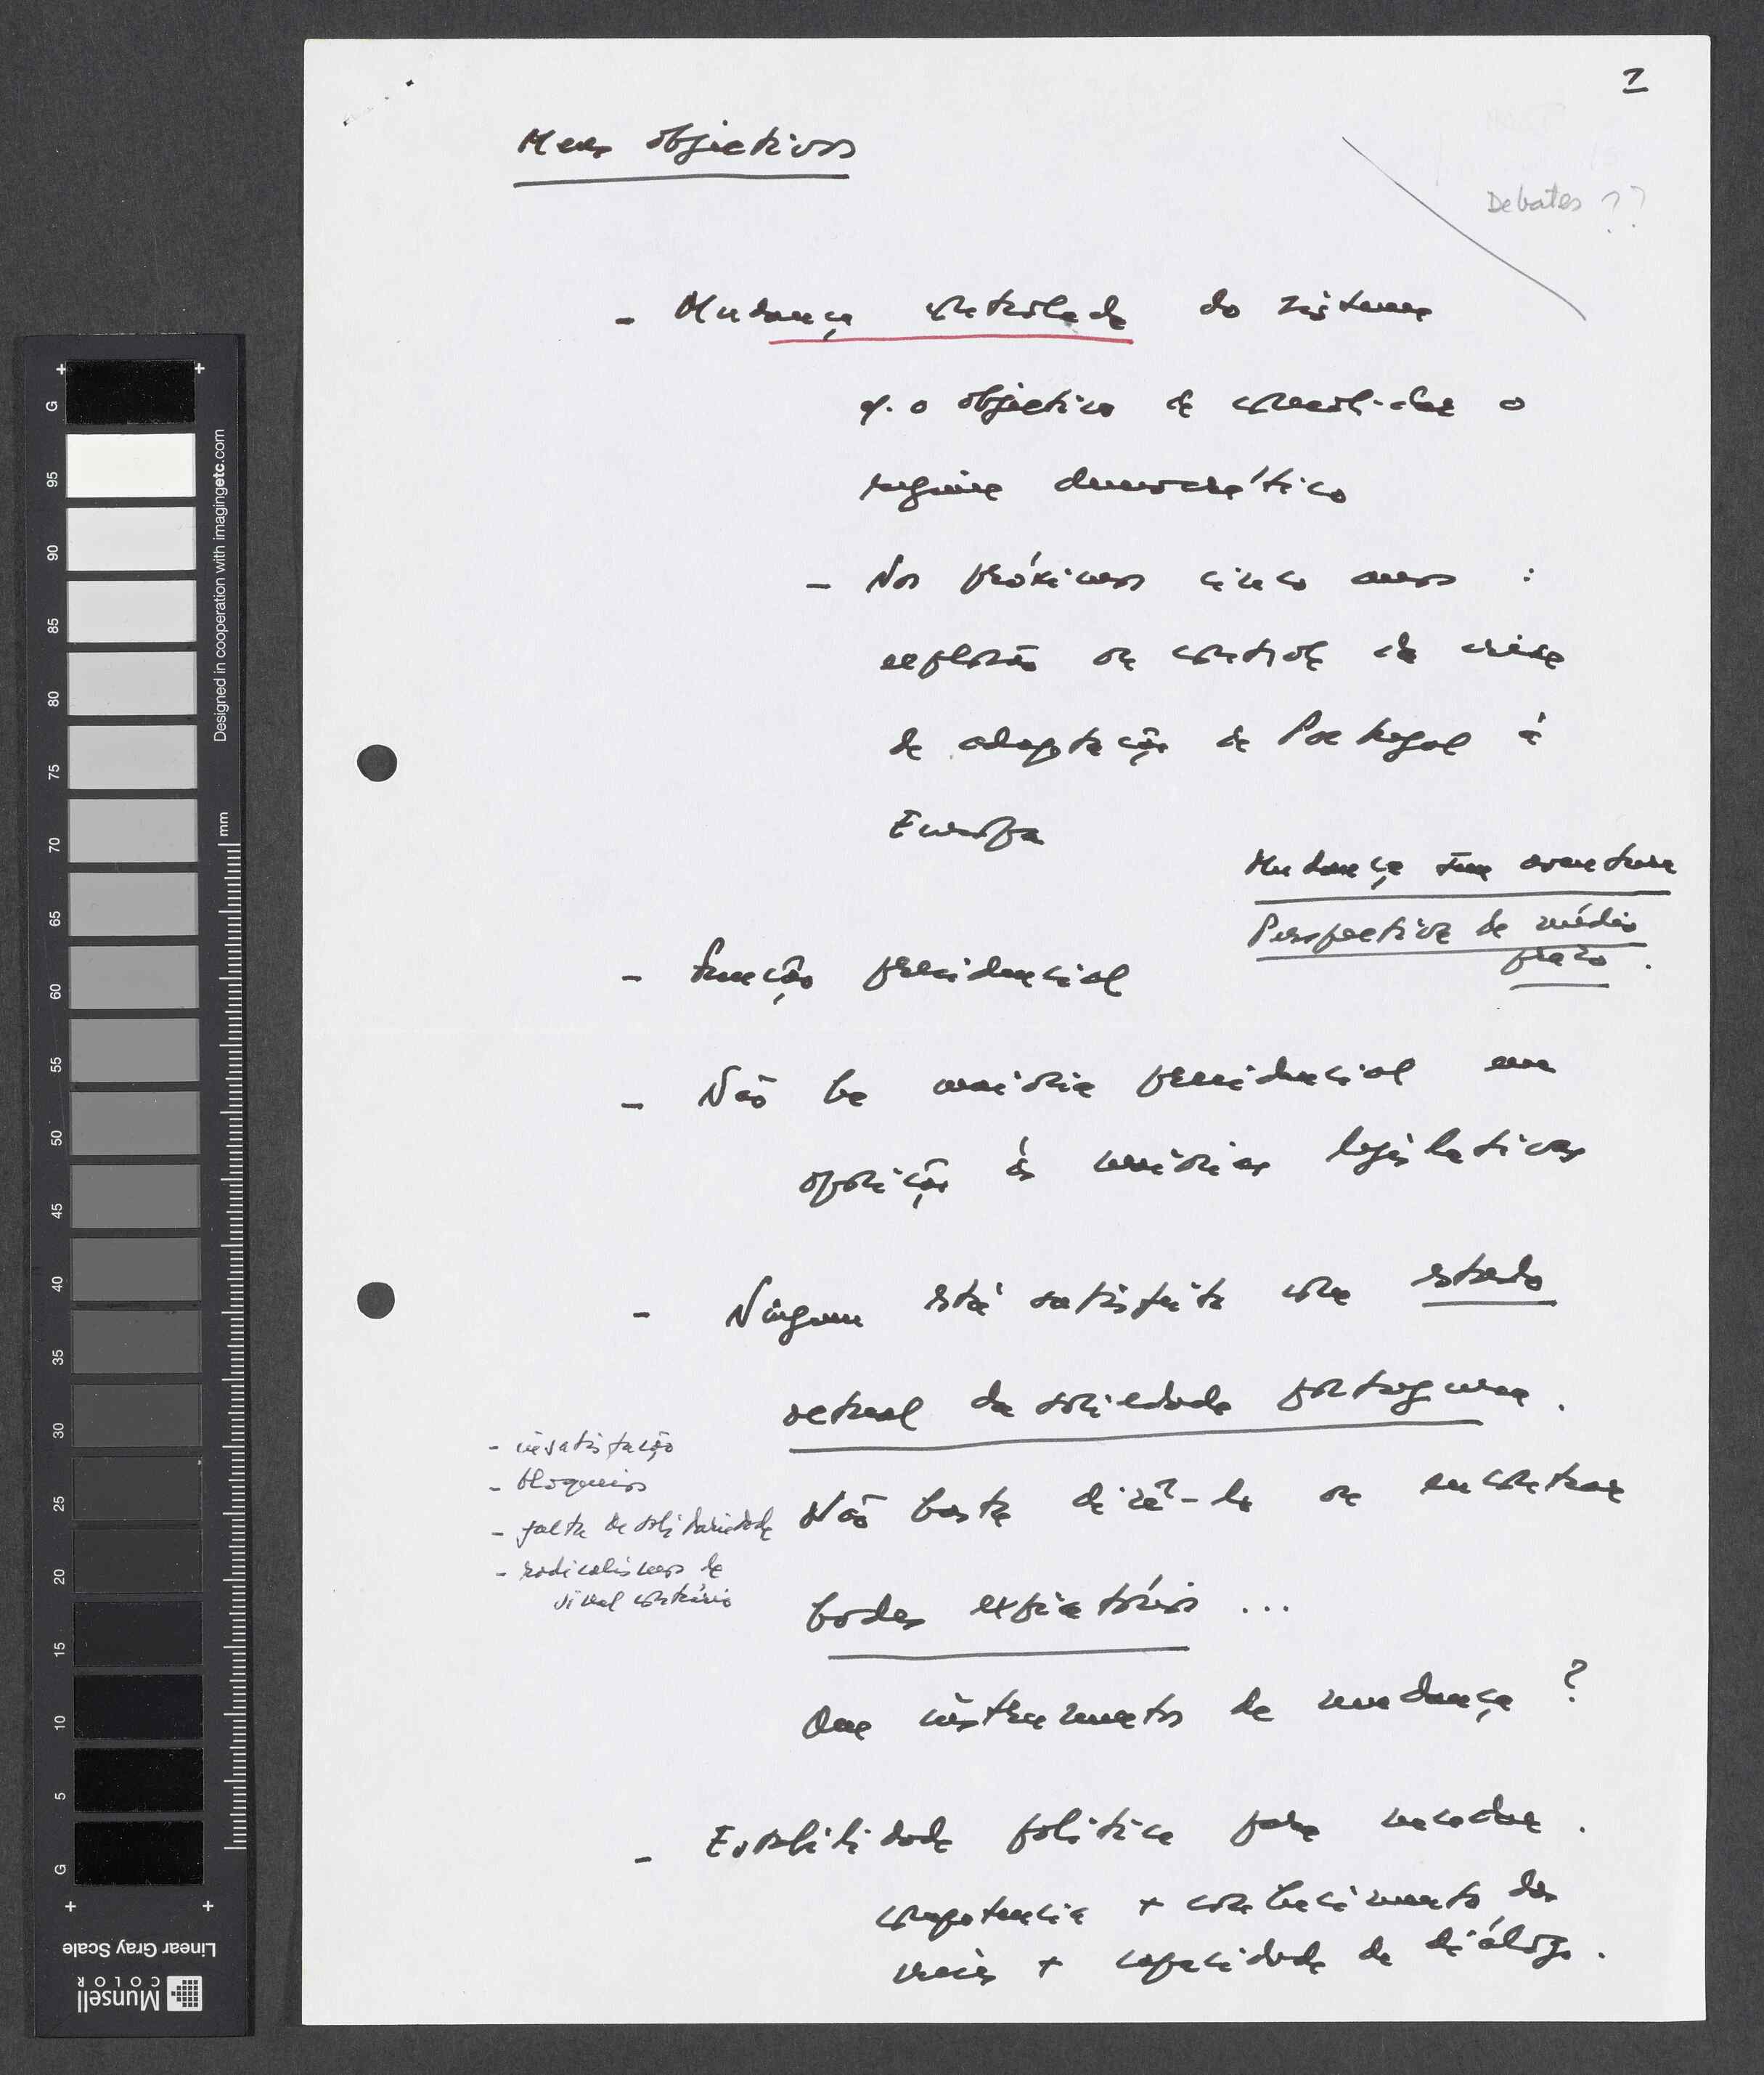 1
Meus objectivos
Debates ??
- Mudança controlada do sistema
c. o objectivo de consolidar o
regime democrático
- Nos próximos cinco anos :
explosão ou controle da crise
de adaptação de Portugal à
Europa
Mudança sem aventura
Perspectiva de médio
prazo.
- função presidencial
- Não há maioria presidencial em
oposição às maiorias legislativas
- Ninguem está satisfeito com estado
actual da sociedade portuguesa.
- insatisfação
- bloqueios
- falta de solidariedade
- radicalismos de
sinal contrário
Não basta dizê-lo ou encontrar
bodes expiatórios ...
Que instrumentos de mudança ?
- Estabilidade política para mudar.
competencia + conhecimento dos
meios + capacidade de diálogo.
G
95
90
85
80
75
70
65
60
55
50
45
40
35
30
25
20
15
10
5
G
mm
Designed in cooperation with imagingetc.com
Linear Gray Scale
Munsell
COLOR